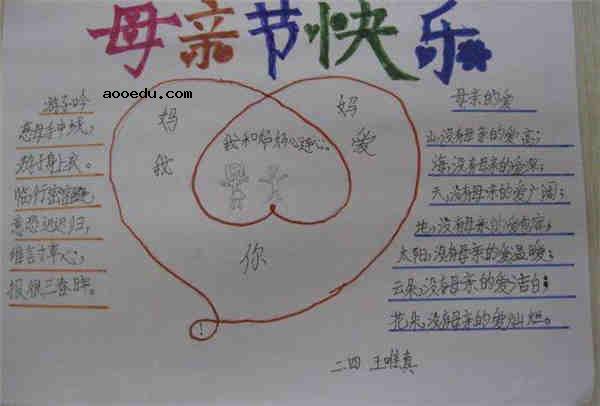 母亲节快乐
aooedu.com
游子吟
慈母手中线，
游子身上衣。
临行密密缝，
意恐迟迟归，
谁言寸草心，
报得三春晖。
妈
妈
我
爱
你
！
我和妈妈心连心。
母亲的爱
山，没有母亲的爱高；
海，没有母亲的爱深；
天，没有母亲的爱广阔；
地，没有母亲的爱宽容；
太阳，没有母亲的爱温暖；
云朵，没有母亲的爱洁白；
花朵，没有母亲的爱灿烂。
二四 王唯真